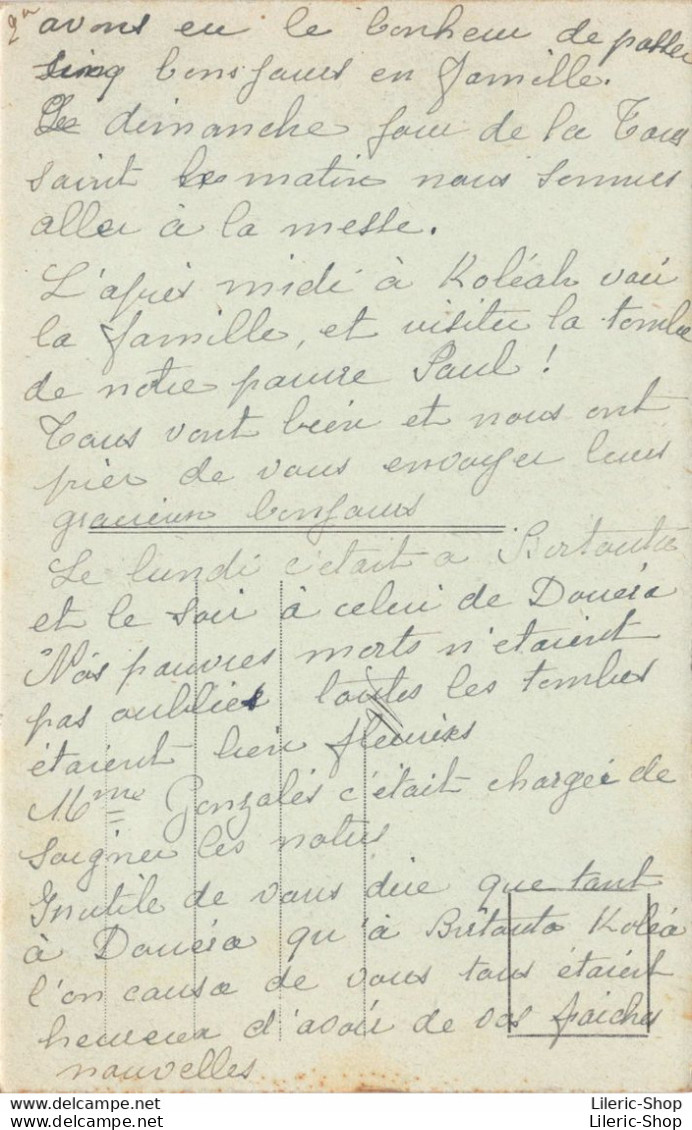 2a avons eu le bonheur de passer
sinq bons jours en famille.
Le dimanche jour de la Tous
saint le matin nous sommes
aller à la messe.
L'après midi à Koléah voir
la famille, et visiter la tombe
de notre pauvre Paul !
Tous vont bien et nous ont
prier de vous envoyer leurs
gracieux bonjours
Le lundi c'était a Birtouta
et le soir à celui de Douéra
Nos pauvres morts n'étaient
pas oubliés toutes les tombes
étaient bien fleuries
Mme Gonzalès c'était chargée de
soigner les notres
Inutile de vous dire que tant
à Douéra qu'à Birtouta Koléa
l'on causa de vous tous étaient
heureux d'avoir de vos fraiches
nouvelles
Lileric-Shop
Lileric-Shop
Lileric-Shop
Lileric-Shop